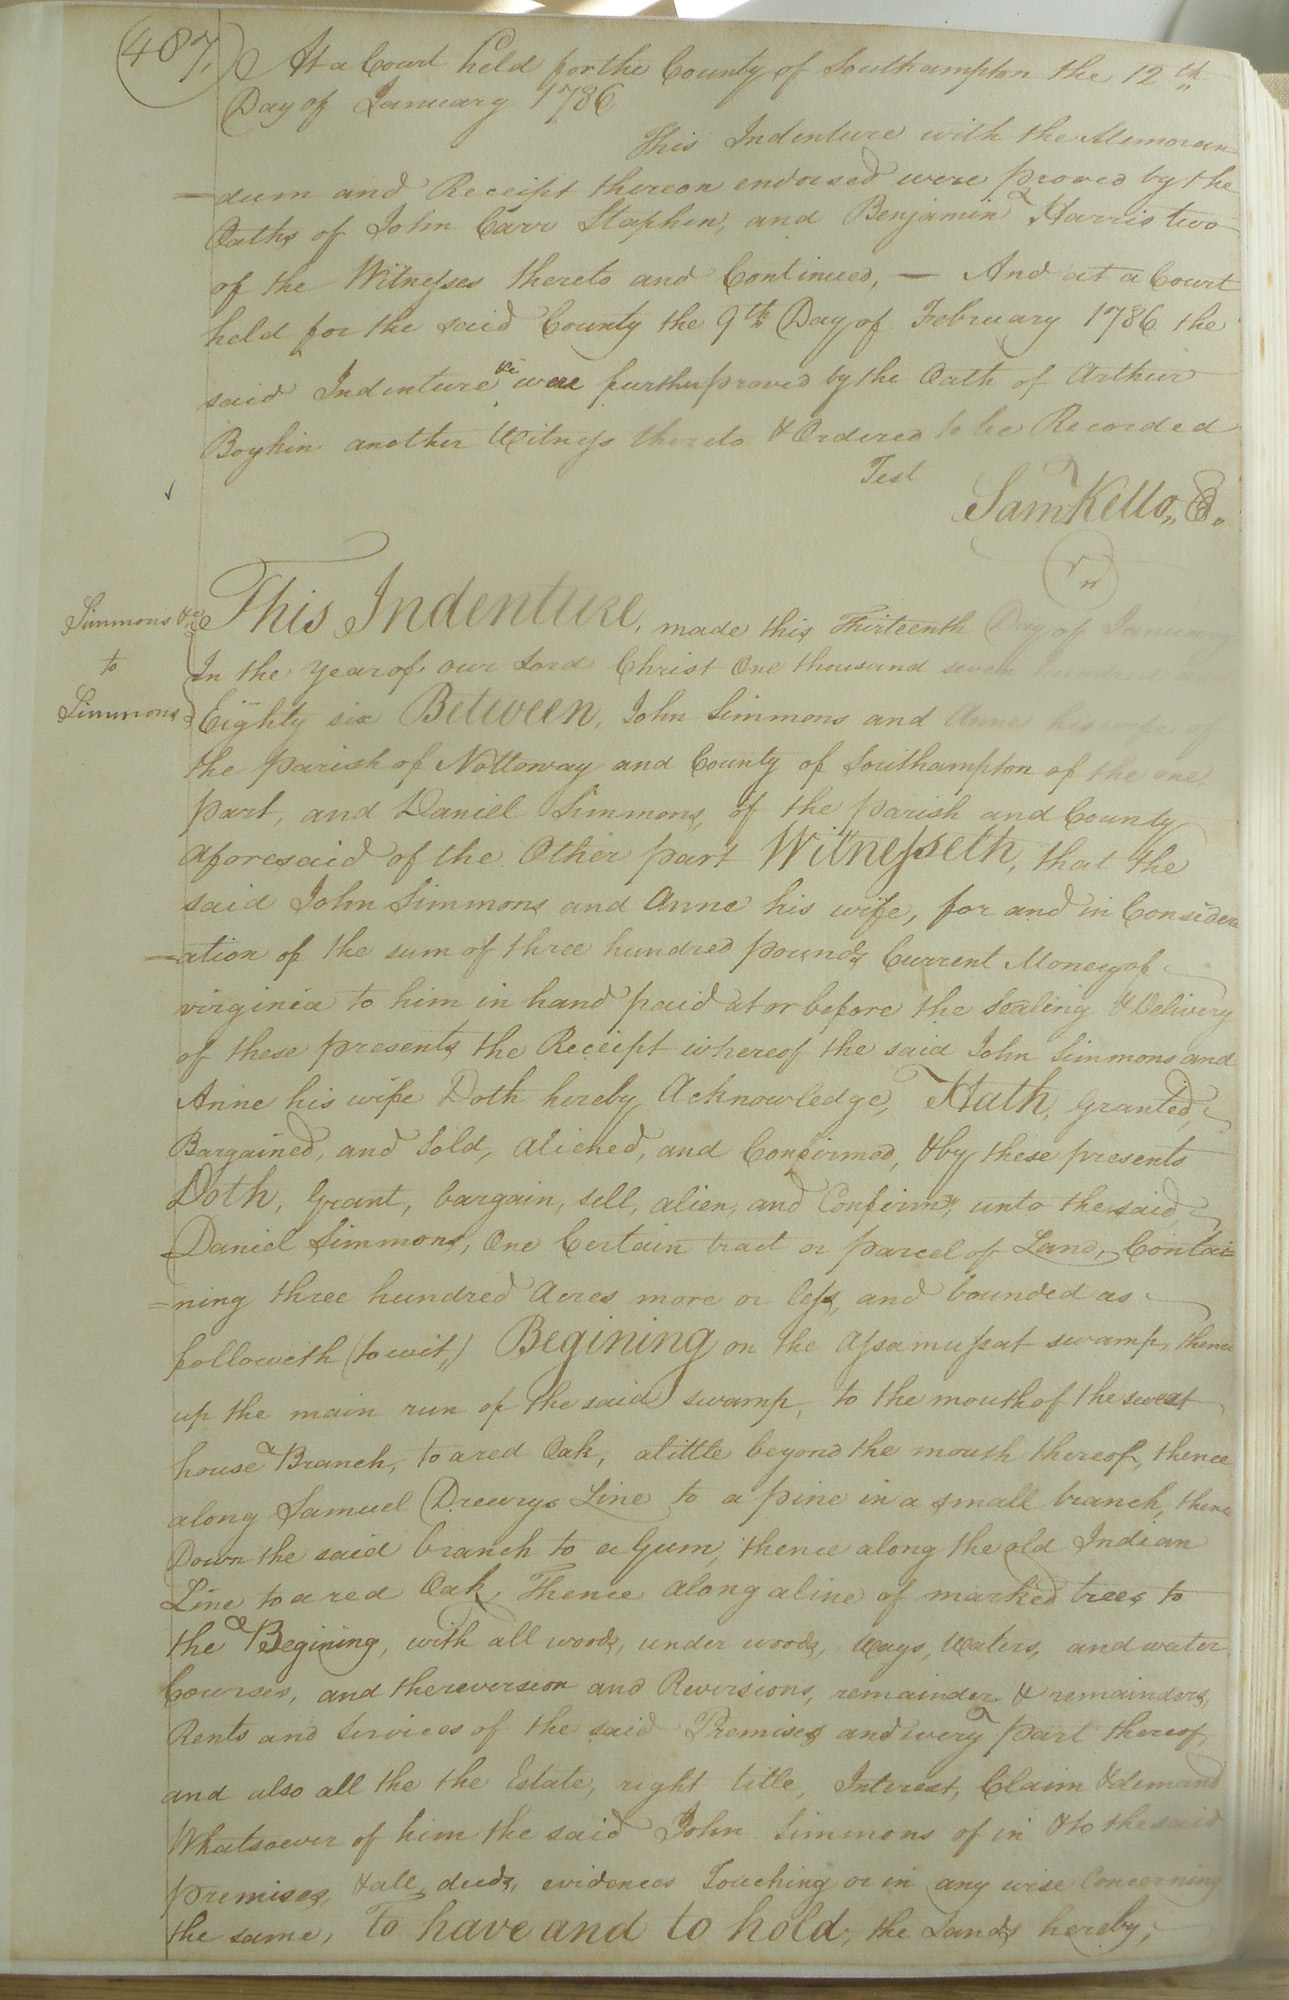 487,
At a Court held for the County of Southampton the 12th
Day of January 1786
This Indenture with the Memoran
=dum and Receipt thereon endorsed were proved by the
Oaths of John Carr Stephen, and Benjamin Harris two
of the Witnesses thereto and Continued, — And at a Court
held for the said County the 9th Day of February 1786 the
said Indenture &c were further proved by the Oath of Arthur
Boykin another Witness thereto & Ordered to be Recorded
Test
Sam Kello,
Simmons &c
to
Simmons
This Indenture, made this Thirteenth Day of January
In the year of our Lord Christ One thousand seven hundred
Eighty six Between, John Simmons and Anne his wife of
the parish of Nottoway and County of Southampton of the one
part, and Daniel Simmons, of the parish and County
aforesaid of the Other part Witnesseth, that the
said John Simmons and Anne his wife, for and in Consider
=ation of the sum of three hundred pounds Current Money of
virginia to him in hand paid at or before the Sealing & Delivery
of these presents the Receipt whereof the said John Simmons and
Anne his wife Doth hereby Acknowledge, Hath, Granted,
Bargained, and Sold, aliened, and Confirmed, & by these presents
Doth, Grant, bargain, sell, alien, and Confirm, unto the said,
Daniel Simmons, One Certain tract or parcel of Land, Contai=
=ning three hundred Acres more or less, and bounded as
followeth (to wit,) Begining on the Assamussat swamp, thence
up the main run of the said swamp, to the mouth of the sweat
house Branch, to a red Oak, a little beyond the mouth thereof, thence
along Samuel Drewrys Line to a pine in a small branch, thence
Down the said branch to a Gum, thence along the old Indian
Line to a red Oak, Thence along a line of marked trees to
the Begining, with all woods, under woods, Ways, Waters, and water
Courses, and the reversion and Reversions, remainder & remainders,
Rents and Services of the said Premises and every part thereof
and also all the the Estate, right title, Interest, Claim & demand
Whatsoever of him the said John Simmons of in & to the said
premises, & all deeds, evidences Touching or in any wise Concerning
the same, To have and to hold, the Lands hereby,